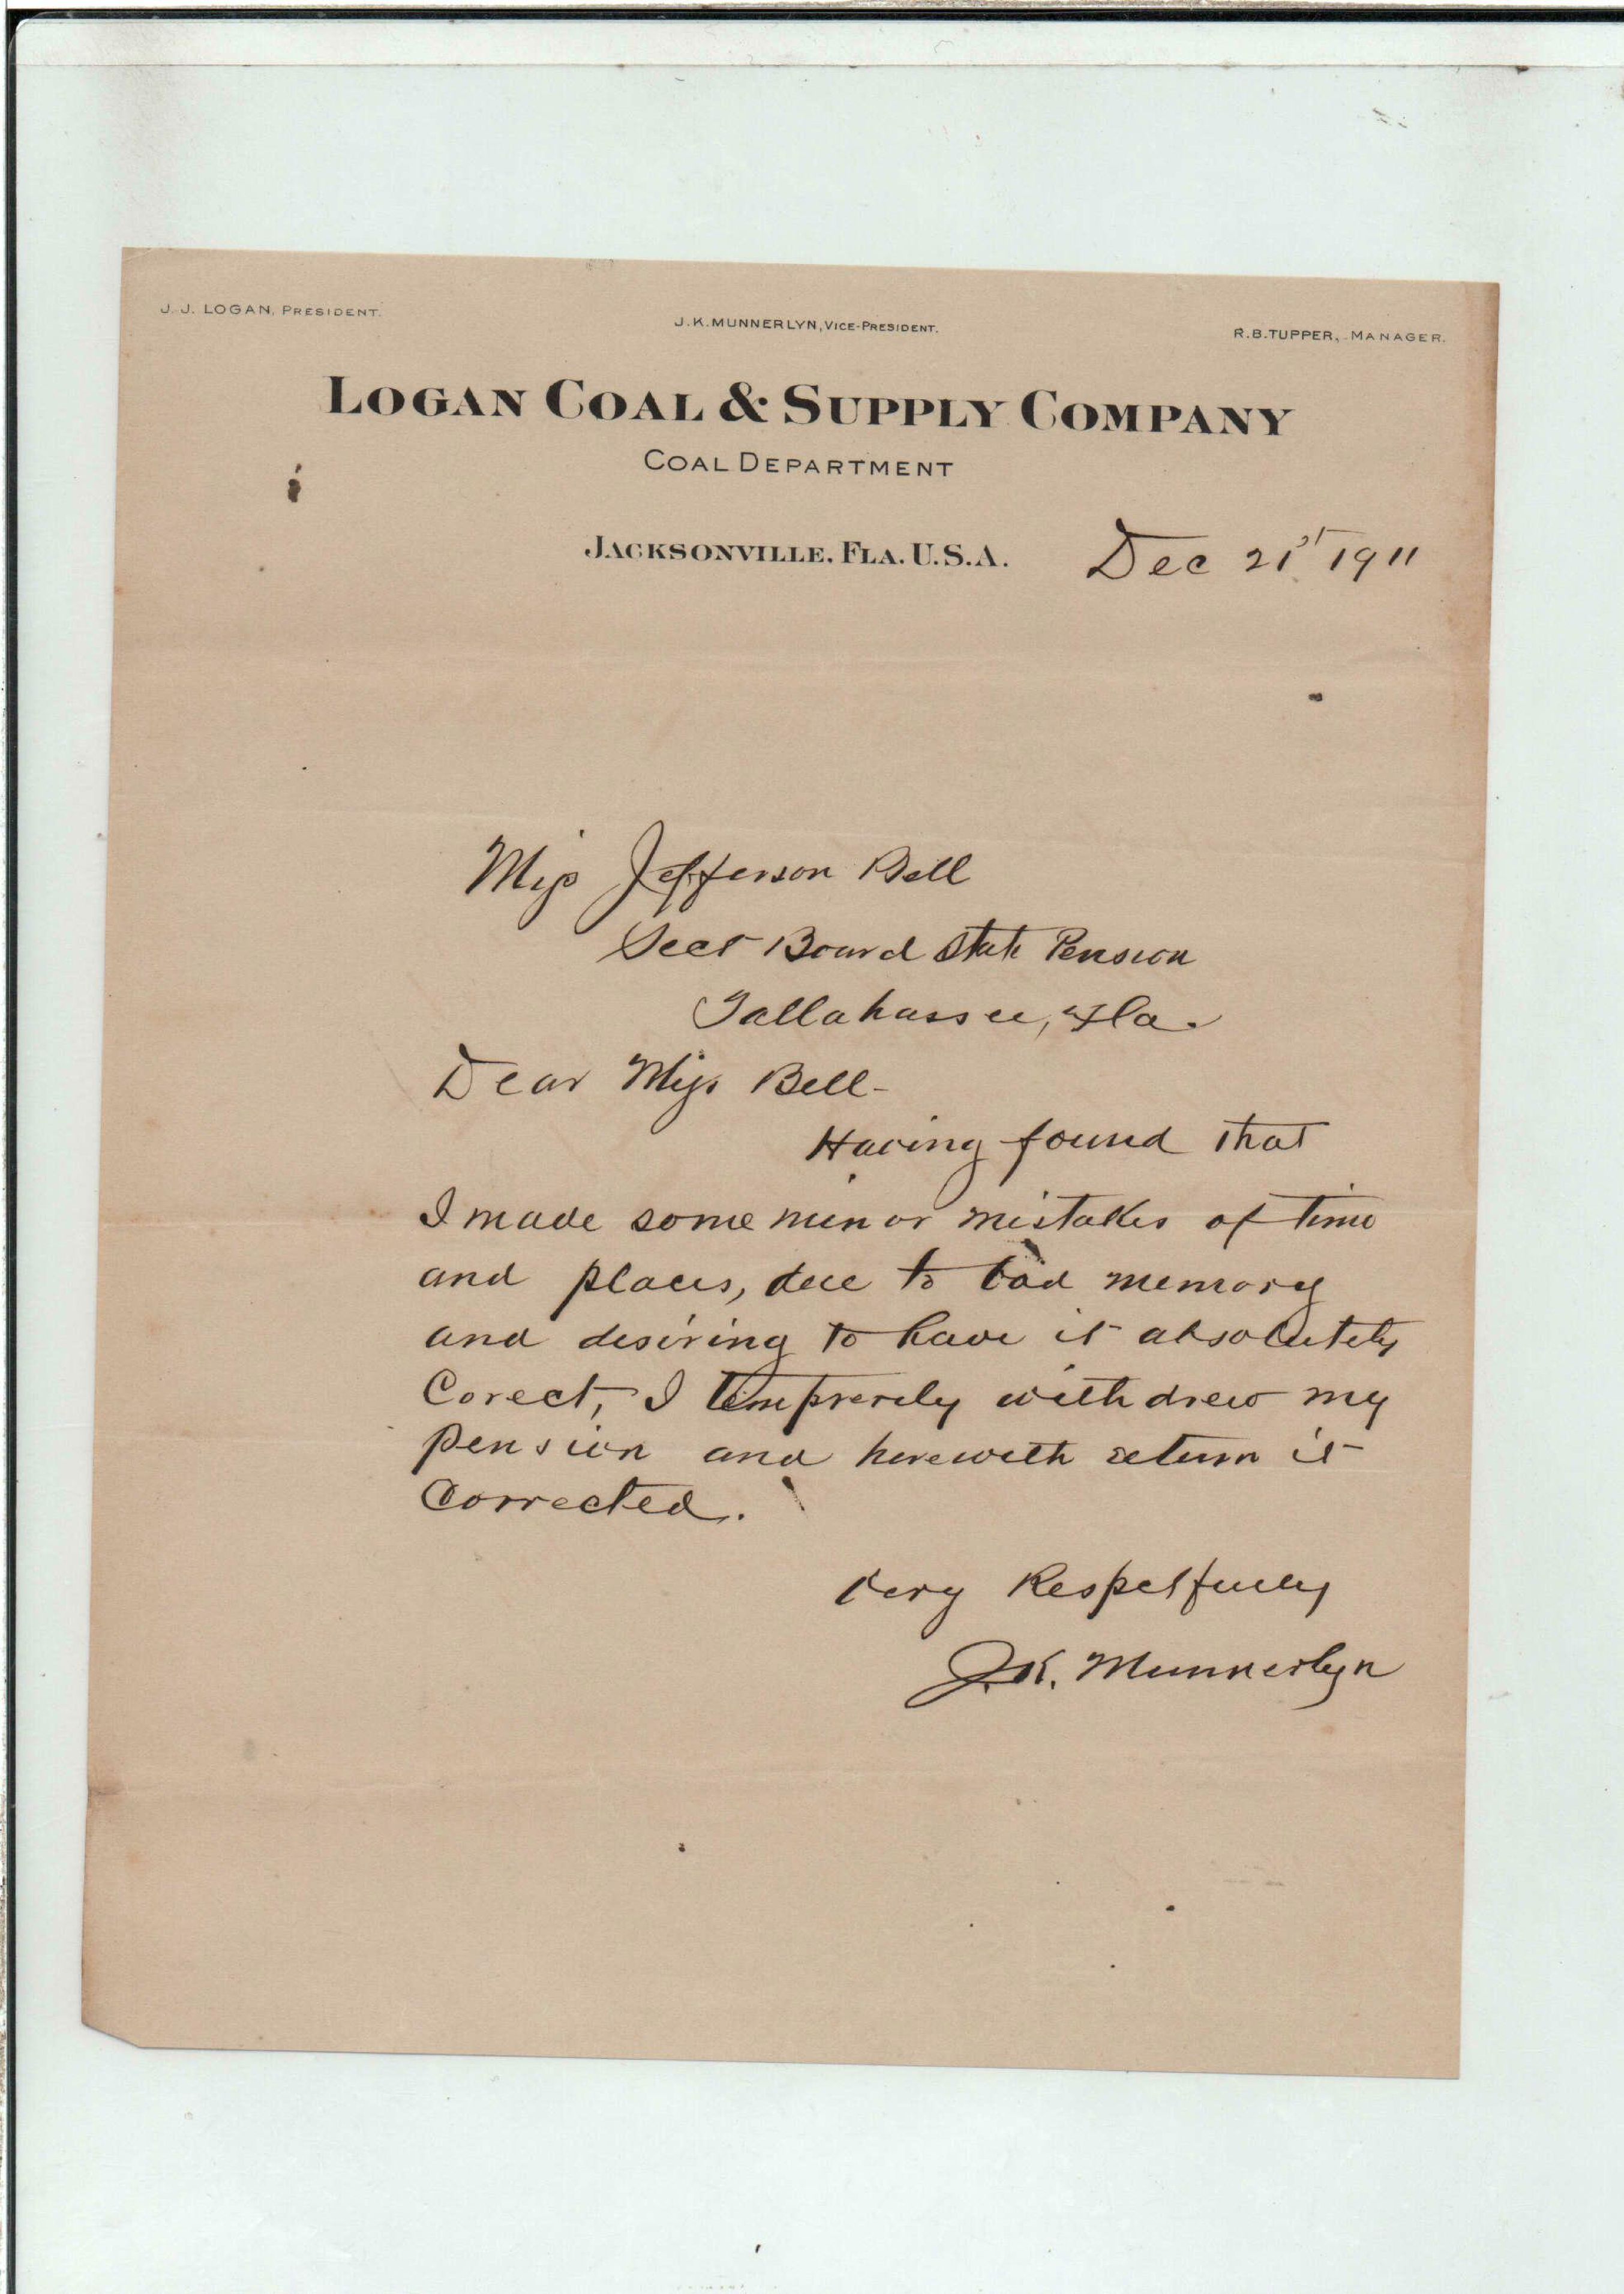 J. J. LOGAN, PRESIDENT.
J. K. MUNNERLYN, VICE-PRESIDENT.
R. B. TUPPER, MANAGER.
LOGAN COAL & SUPPLY COMPANY
COAL DEPARTMENT
JACKSONVILLE, FLA. U.S.A. Dec 21st 1911
Miss Jefferson Bell
Sect Board State Pension
Tallahassee, Fla.
Dear Miss Bell-
Having found that
I made some minor mistakes of time
and places, due to bad memory
and desiring to have it absolutely
Corect, I temprerely withdrew my
pension and herewith return it
Corrected.
Very Respetfully
J.K. Munnerlyn